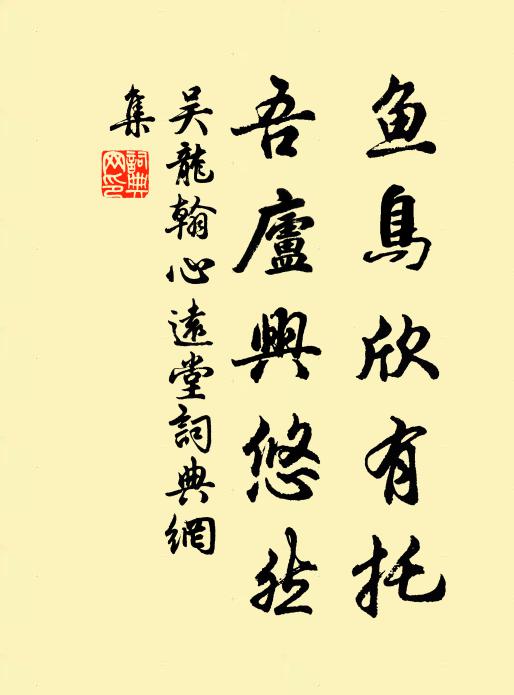 鱼鳥欣有托
吾廬興悠然
吳龍翰心遠堂詞典網
集
詞典网印